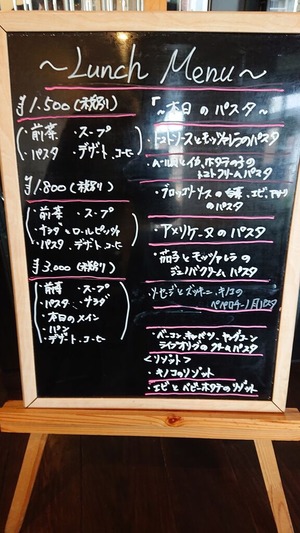 ～Lunch Menu～
¥1.500(税別)
・前菜 ・スープ
・パスタ ・デザート.コーヒー
¥1.800(税別)
・前菜 ・スープ
・サラダ
・パスタ ・デザート.コーヒー
¥3.000(税別)
・前菜 ・スープ
・パスタ ・サラダ
・本日のメイン
・パン
・デザート.コーヒー
～本日のパスタ～
・トマトソースとモッツァレラのパスタ
トマトクリームパスタ
・ブロッコリーソースの
のパスタ
・アメリケーヌのパスタ
・茄子とモッツァレラの
ジェノバクリームパスタ
・ソーセージとズッキーニ、キノコの
ペペロンチーノパスタ
・ベーコン、キャベツ、ヤングコーン
クリームパスタ
<リゾット>
・キノコのリゾット
・エビとベビーホタテのリゾット